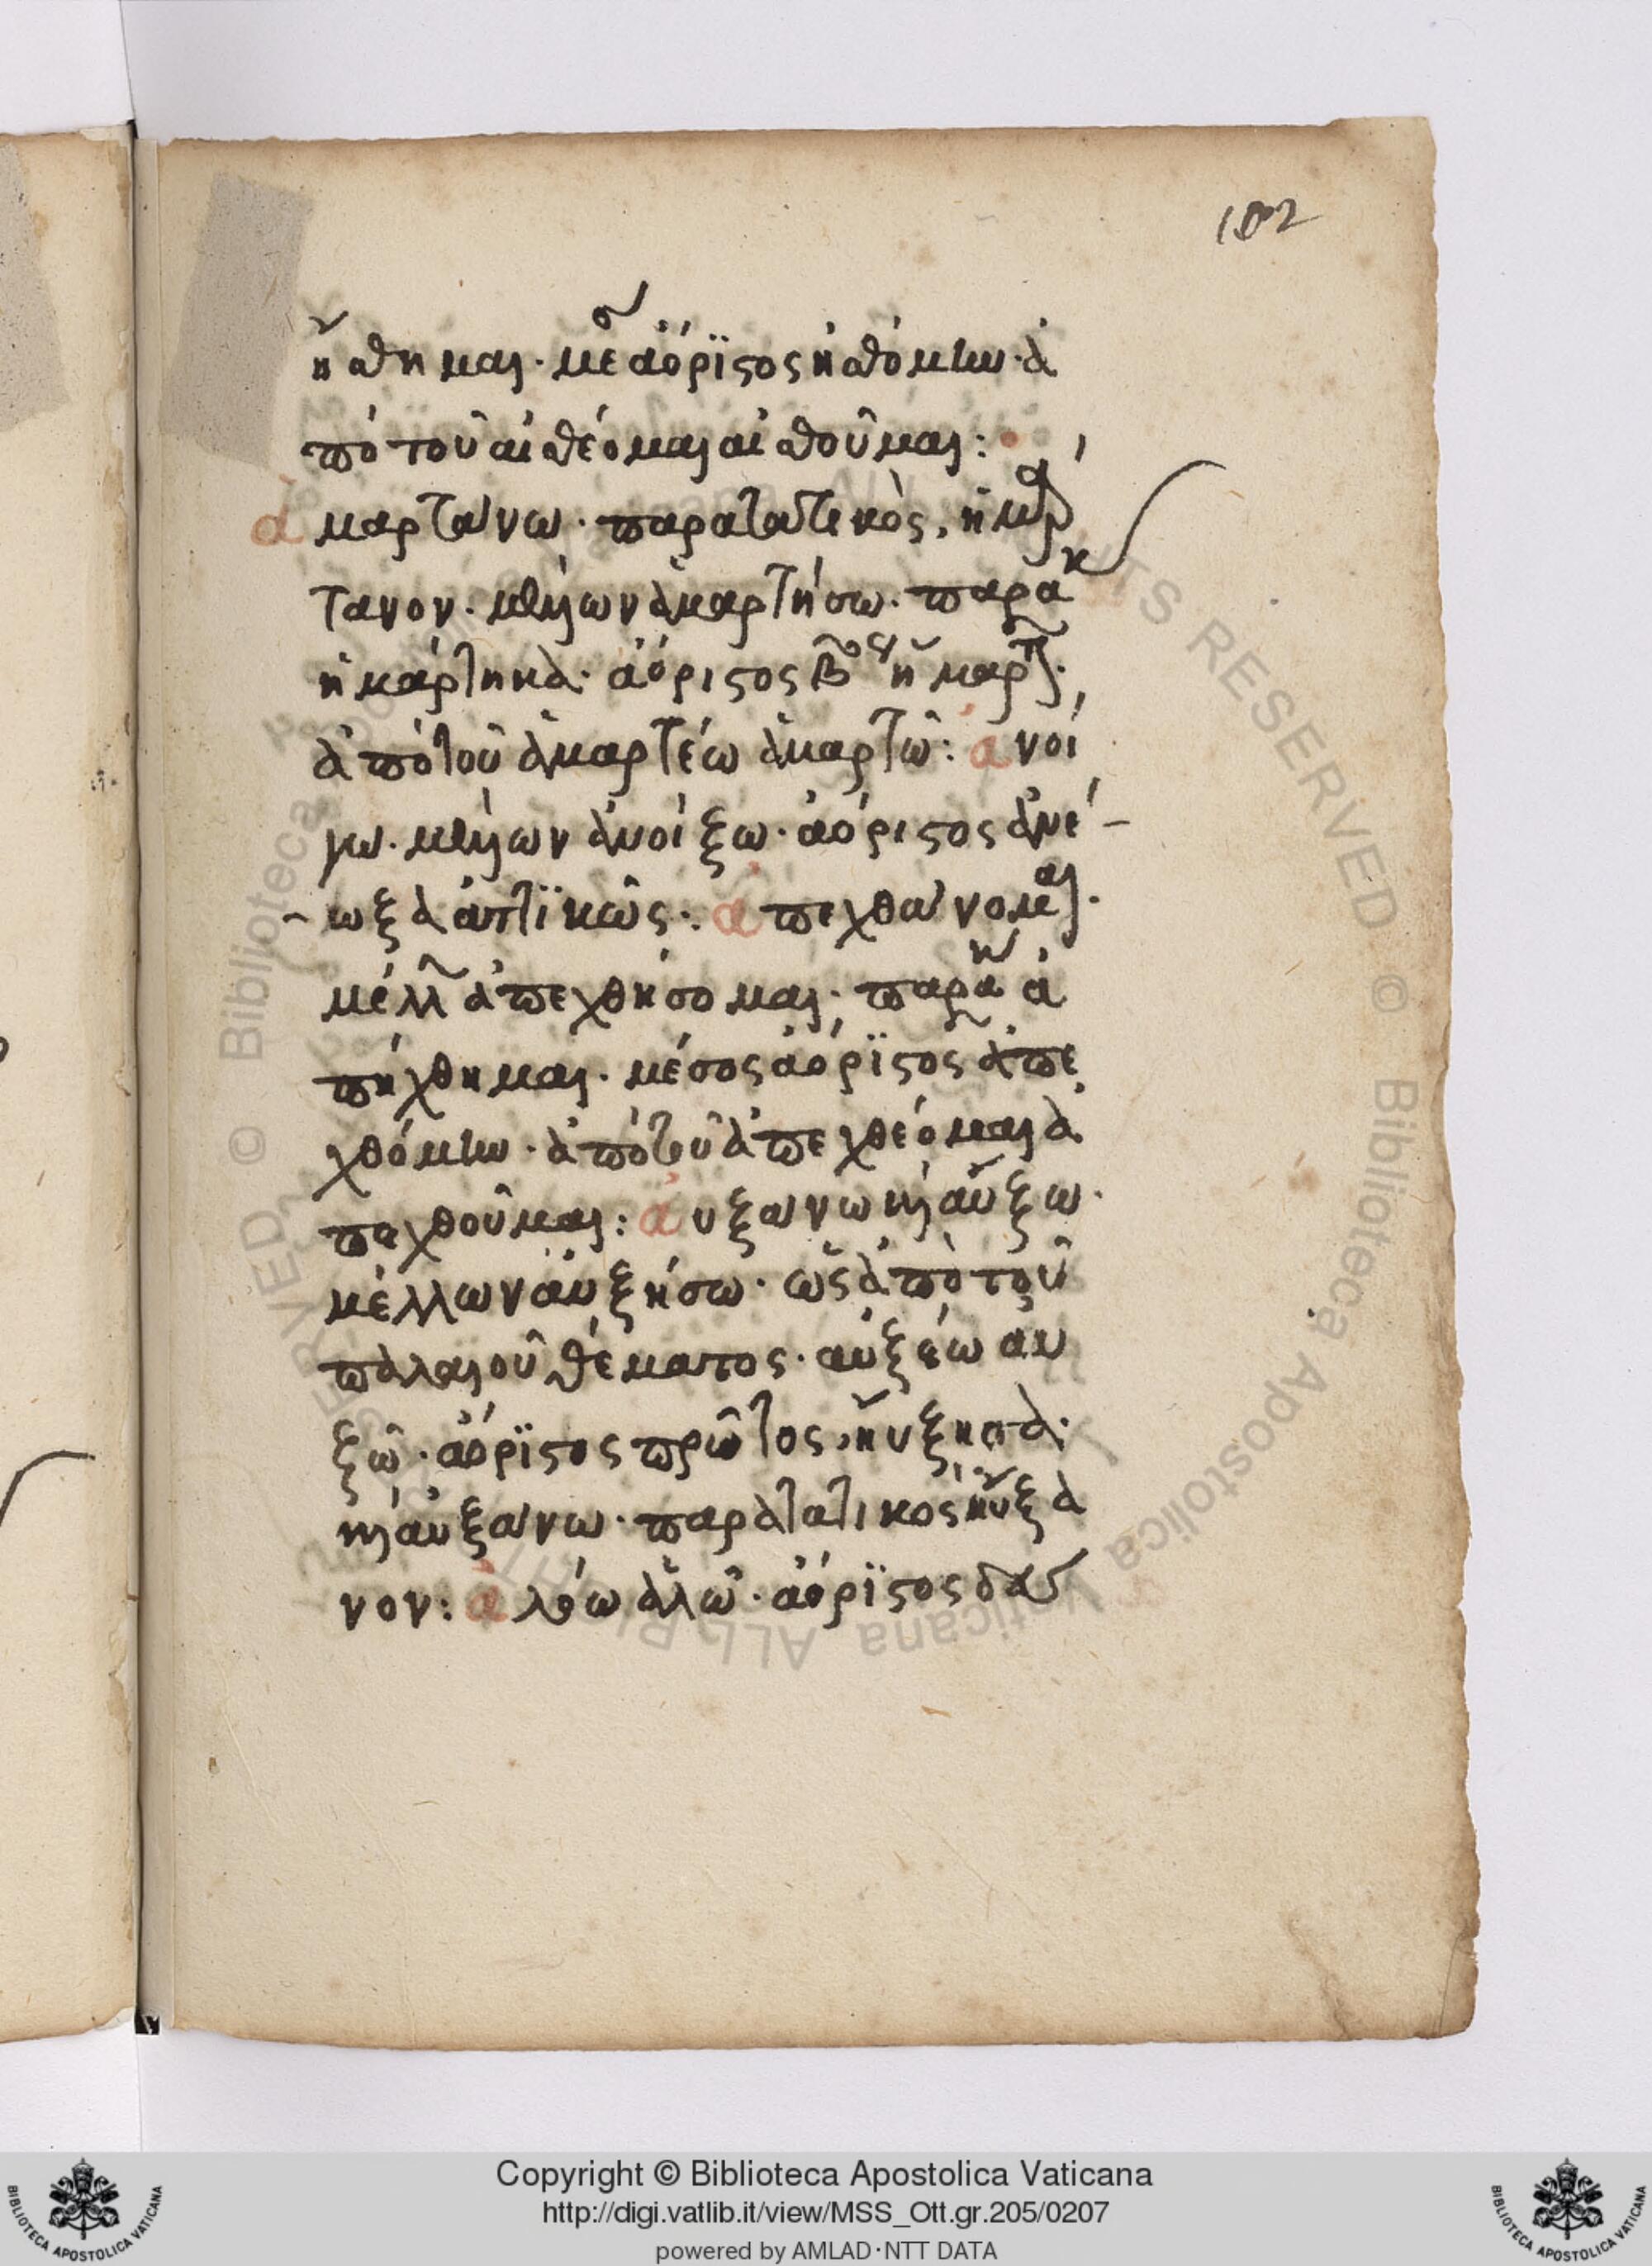 102
ἤσθημαι· μέσ ἀόρϊστος ἠσθόμην· ἀ
πὸ τοῦ αἰσθέομαι αἰσθοῦμαι:
ἁμαρτάνω· παρατατικὸς, ἡμάρ
τανον· μέλλων ἁμαρτήσω· παρακ
ἡμάρτηκα· ἀόριστος βος ἥμαρτ·
ἀπὸ τοῦ ἁμαρτέω ἁμαρτῶ: ἀνοί
γω· μέλλων ἀνοίξω· ἀόριστος ἀνέ-
-ωξα ἀττϊκῶς: ἀπεχθάνομαι·
μέλλ ἀπεχθήσομαι· παρακ ἀ
πήχθημαι· μέσος ἀόρϊστος ἀπε
χθόμην· ἀπὸ τοῦ ἀπεχθέομαι ἀ
πεχθοῦμαι: αυξάνω καὶ αὔξω·
μέλλων αὐξήσω· ὡς ἀπὸ τοῦ
παλαιοῦ θέματος· αὐξέω αυ
ξῶ· ἀόρϊστος πρῶτος, ηὔξησα·
καὶ αὐξάνω· παρατατικὸς ηὔξα
νον: ἁλόω ἁλῶ· ἀόρϊστος δασ
Copyright © Biblioteca Apostolica Vaticana
http://digi.vatlib.it/view/MSS_Ott.gr.205/0207
powered by AMLAD·NTT DATA